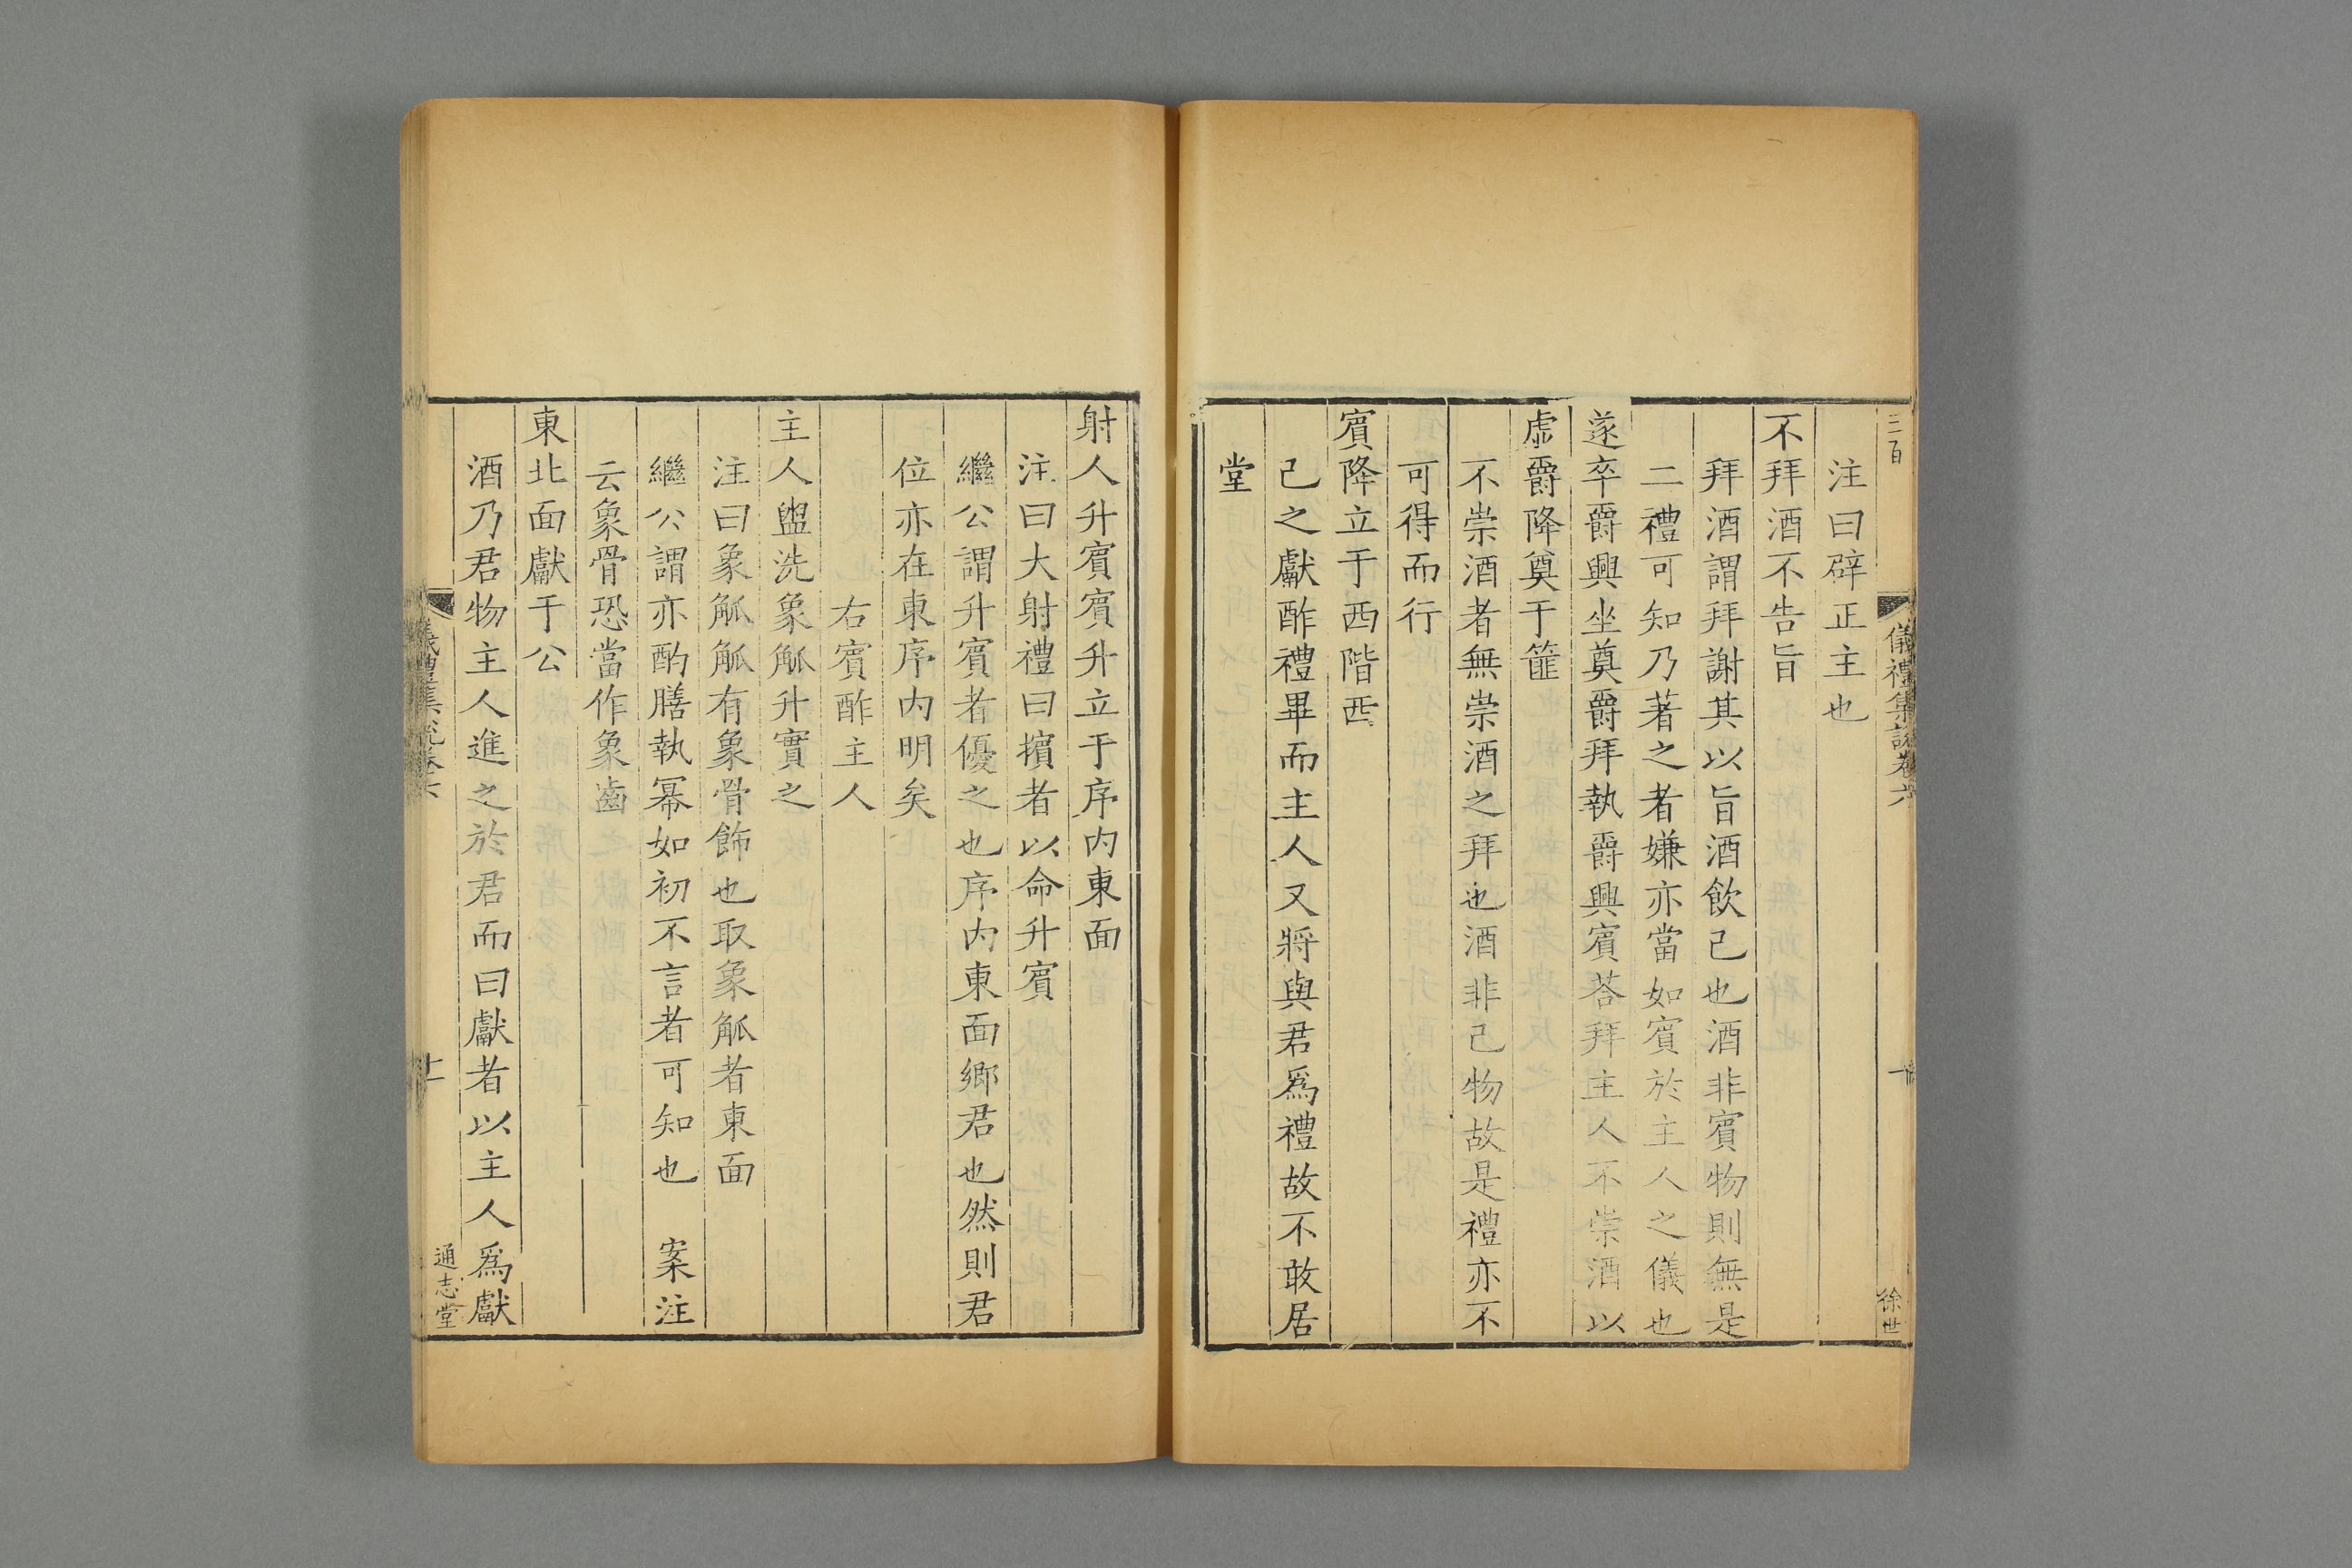 三百
儀禮集說卷六
徐世
注曰辟正主也
不拜酒不告旨
拜酒謂拜謝其以旨酒飲己也酒非賓物則無是
二禮可知乃著之者嫌亦當如賓於主人之儀也
遂卒爵興坐奠爵拜執爵興賓荅拜主人不崇酒以
虛爵降奠于篚
不崇酒者無崇酒之拜也酒非己物故是禮亦不
可得而行
賓降立于西階西
己之獻酢禮畢而主人又將與君爲禮故不敢居
堂
射人升賓賓升立于序内東面
注曰大射禮曰擯者以命升賓
繼公謂升賓者優之也序内東面鄉君也然則君
位亦在東序内明矣
右賓酢主人
主人盥洗象觚升實之
注曰象觚觚有象骨飾也取象觚者東面
繼公謂亦酌膳執冪如初不言者可知也 案注
云象骨恐當作象齒
東北面獻于公
酒乃君物主人進之於君而曰獻者以主人爲獻
儀禮集說卷六
十一
通志堂